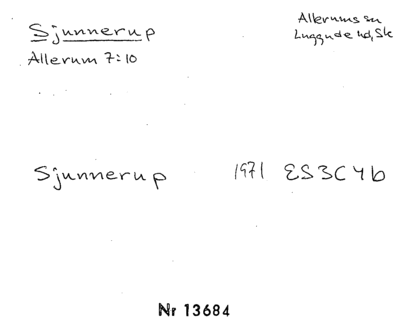 Sjunnerup
Allerum 7:10
Allerums sn
Luggude hd, Sk
Sjunnerup 1971 ES3C4b
Nr 13684